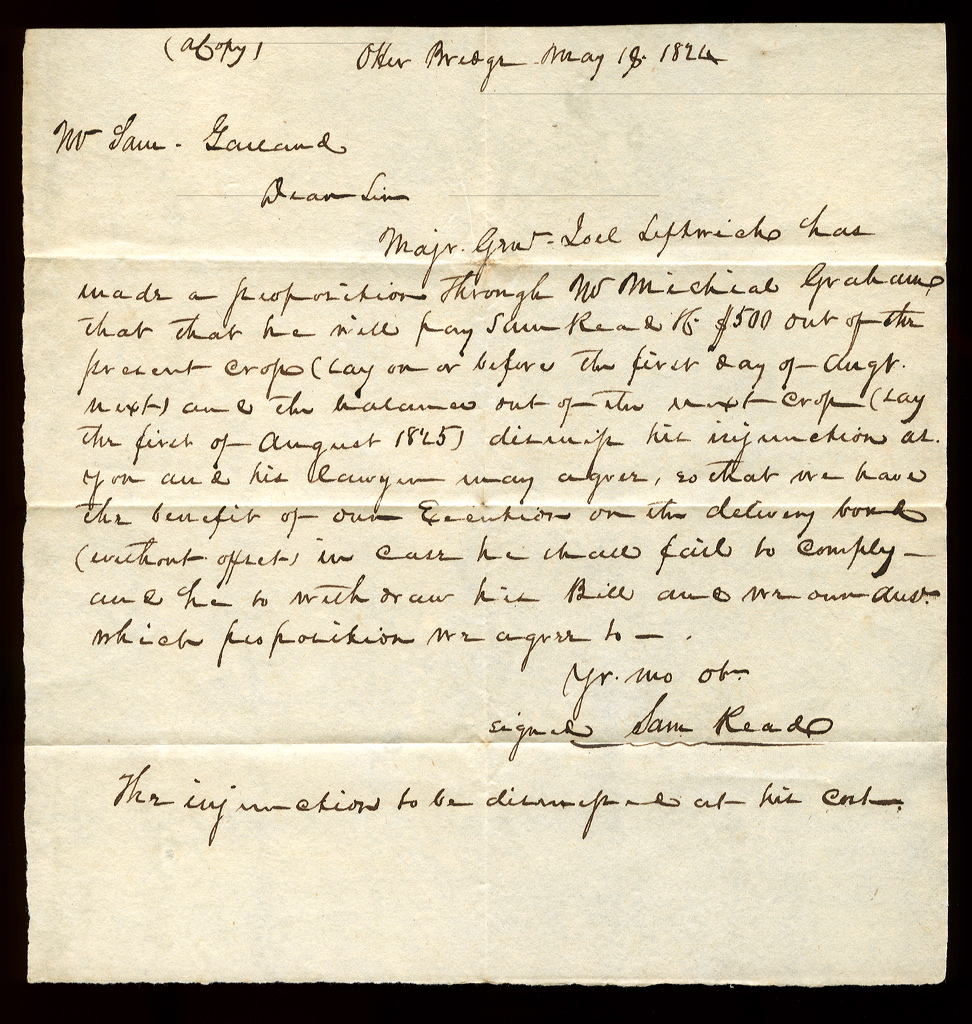 (a Copy) Otter Bridge May 18. 1824
Mr Sam. Garland
Dear Sir
Majr. Genl. Joel Leftwich has
made a proposition through Mr Michial Graham
that that he will pay Sam Read $500 out of the
present crop (say on or before the first day of Augt.
next) and the balance out of the next crop (say
the first of August 1825) dismiss his injunction as
you and his lawyer may agree, so that we have
the benefit of our Execution on the delivery bond
(without offset) in case he shall fail to comply -
and he to withdraw his Bill and we our Answr.
which proposition we agree to - .
Yr. mo ob.
signed Sam Read
The injunction to be dismissed at his cost.